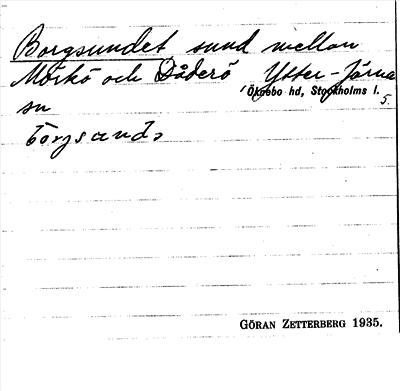 Borgsundet sund mellan
Mörkö och Oåderö Ytter-Järna
Öknebo hd, Stockholms l.
sn 5.
GÖRAN ZETTERBERG 1935.